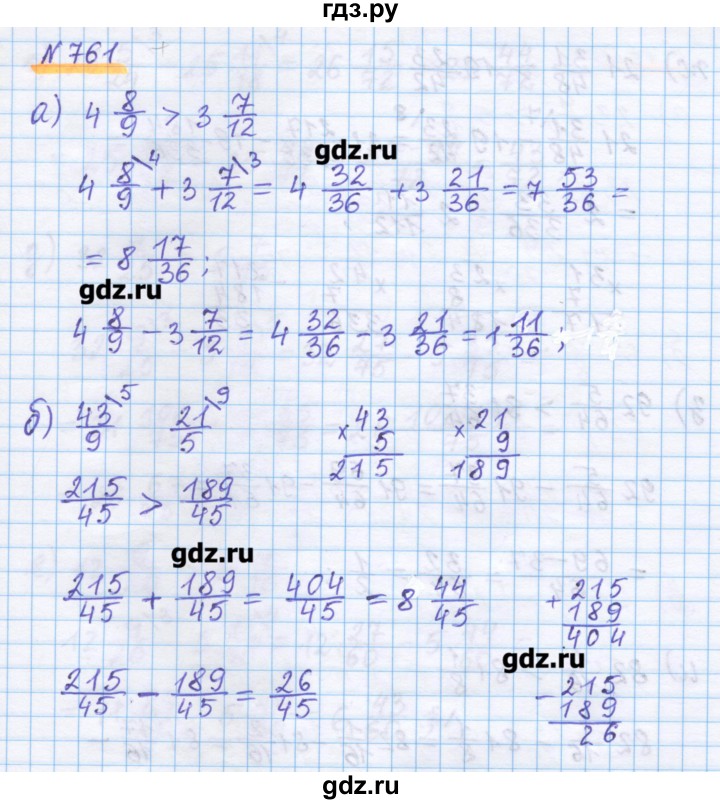 гдз.ру
N 761
а) 4 8/9 > 3 7/12
gdz.ru
4 8/9 \4 + 3 7/12 \3 = 4 32/36 + 3 21/36 = 7 53/36 =
= 8 17/36 ;
gdz.ru
4 8/9 - 3 7/12 = 4 32/36 - 3 21/36 = 1 11/36 ;
б) 43/9 \5 21/5 \9
× 43
5
215
× 21
9
189
215/45 > 189/45
gdz.ru
215/45 + 189/45 = 404/45 = 8 44/45
+ 215
189
404
gdz.ru
215/45 - 189/45 = 26/45
- 215
189
26
gdz.ru